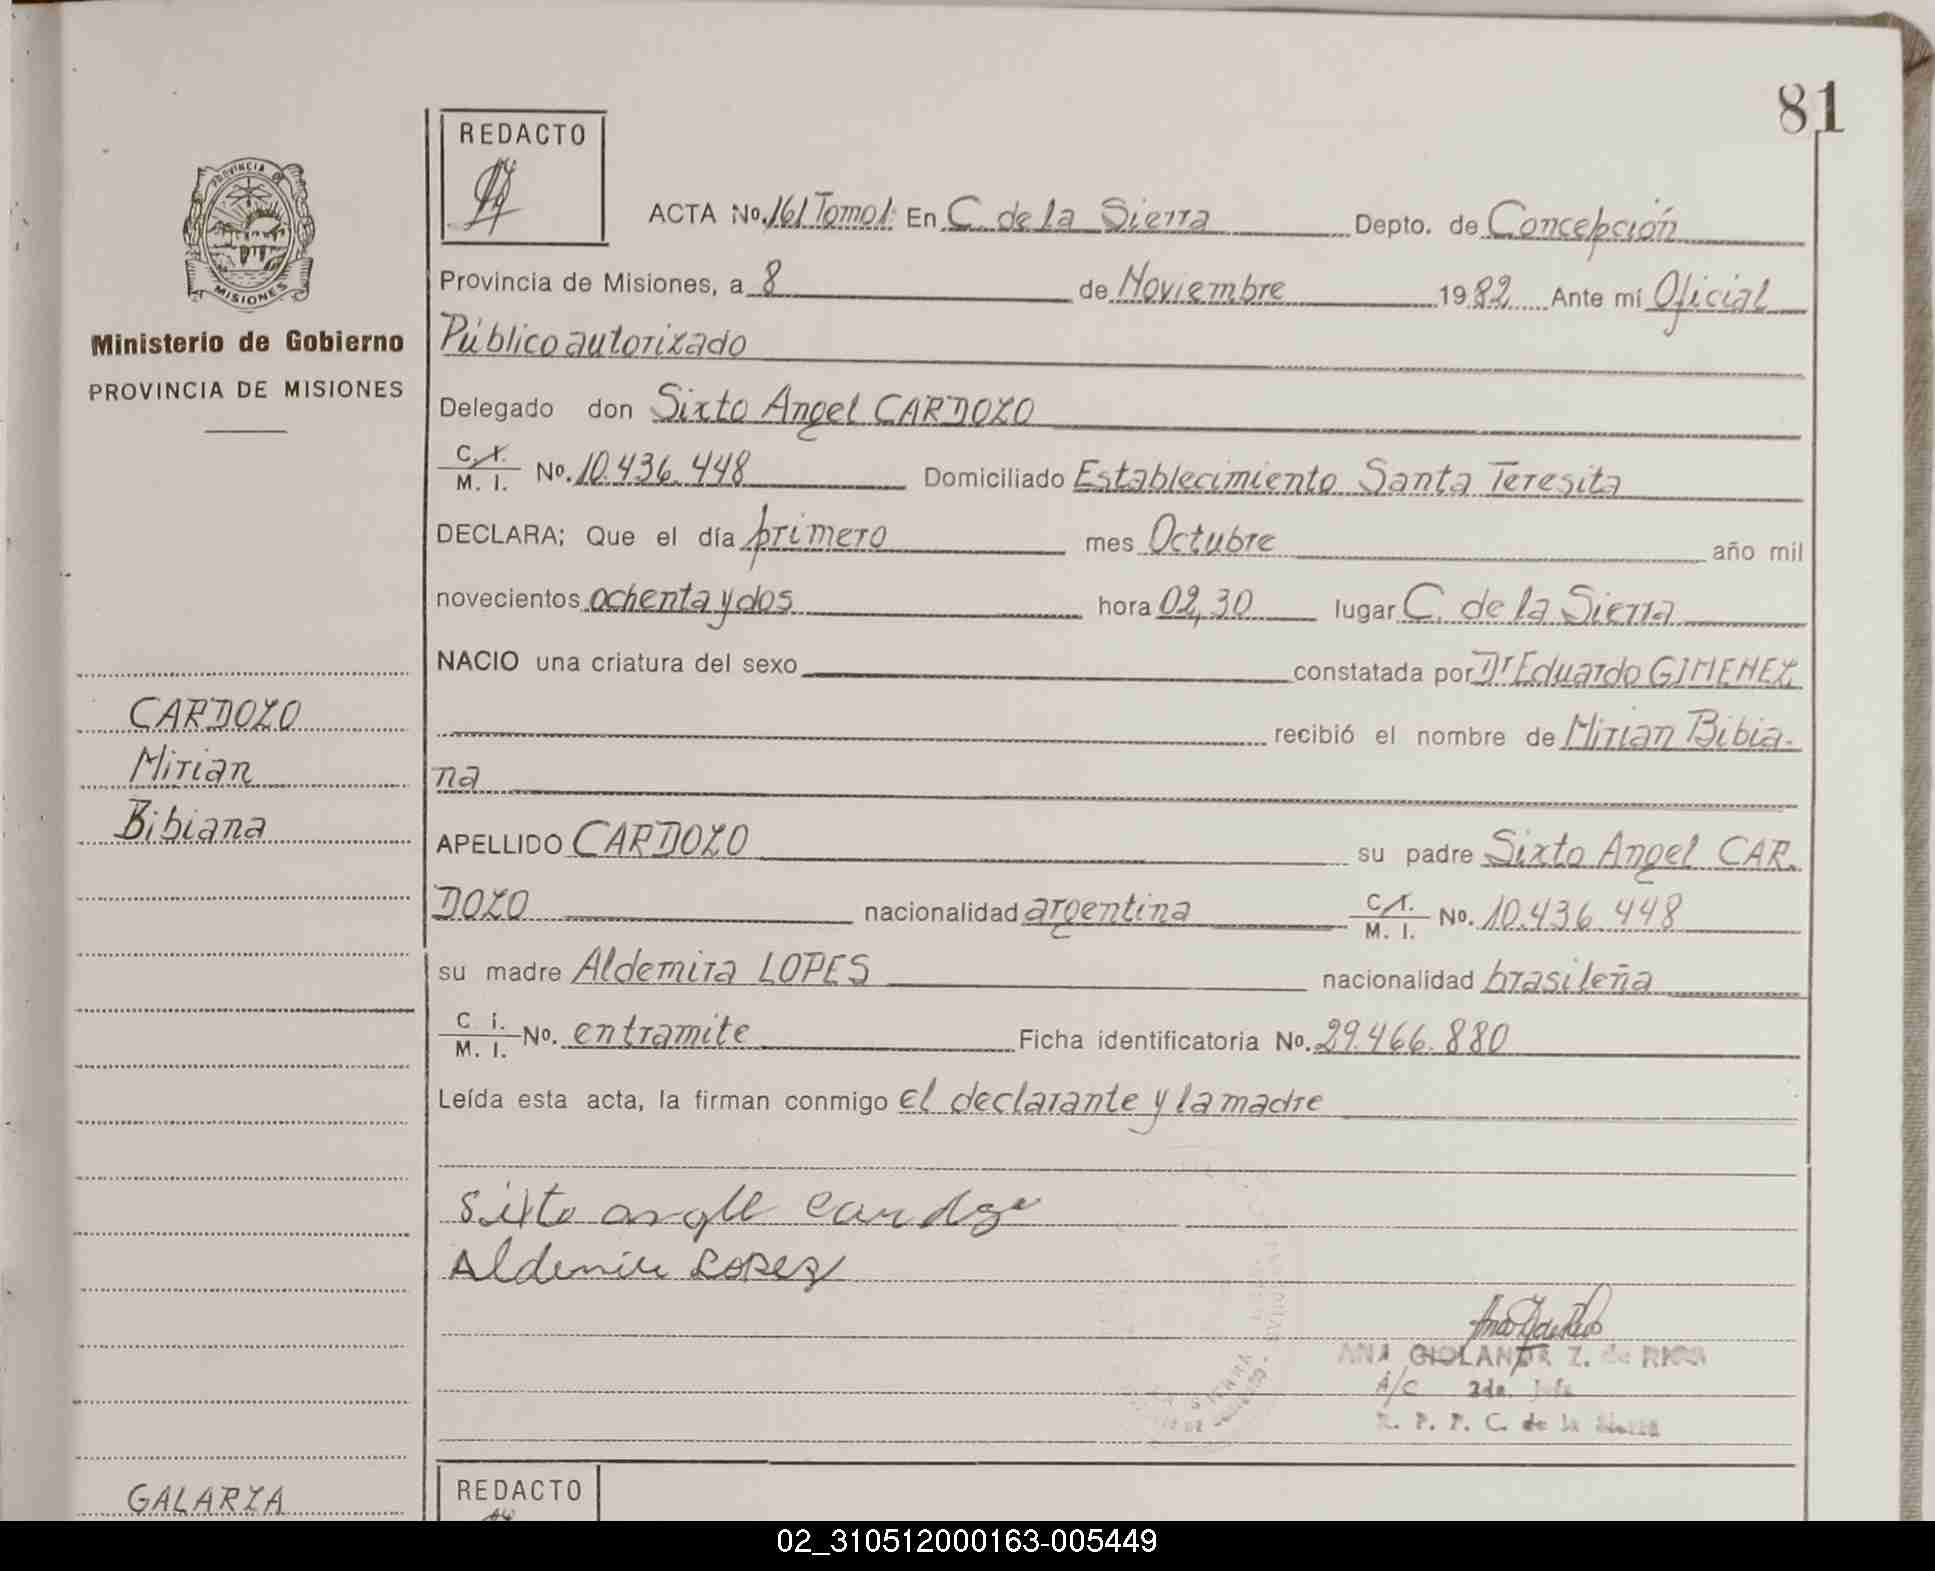 81
REDACTO
ACTA No. 161 Tomo 1: En C. de la Sierra Depto. de Concepción
Provincia de Misiones, a 8 de Noviembre 1982 Ante mí Oficial
Público autorizado
PROVINCIA DE
MISIONES
Ministerio de Gobierno
PROVINCIA DE MISIONES
Delegado don Sixto Angel CARDOZO
C. I.
M. I. No. 10.436.448 Domiciliado Establecimiento Santa Teresita
DECLARA; Que el día primero mes Octubre año mil
novecientos ochenta y dos hora 02,30 lugar C. de la Sierra
NACIO una criatura del sexo constatada por Dr Eduardo GIMENEZ
recibió el nombre de Mirian Bibia-
na
CARDOZO
Mirian
Bibiana
APELLIDO CARDOZO su padre Sixto Angel CAR-
DOZO nacionalidad argentina C. I.
M. I. No. 10.436.448
su madre Aldemira LOPES nacionalidad brasileña
C. I.
M. I. No. en tramite Ficha identificatoria No. 29.466.880
Leída esta acta, la firman conmigo el declarante y la madre
Sixto
Lopez
Z. de
A/C 2da. Jefe
R. P. P. C. de la Sierra
GALARZA
REDACTO
02_310512000163-005449